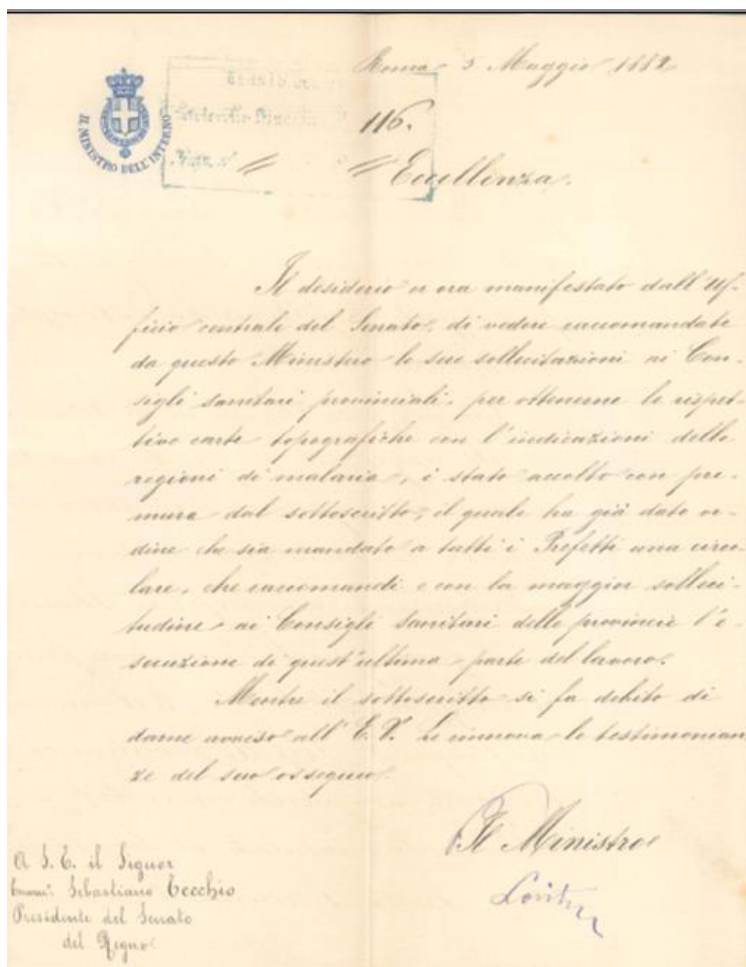 Roma 3 Maggio 1882
IL MINISTRO DELL'INTERNO
116.
Eccellenza.
Il desiderio or ora manifestato dall'Uf-
ficio centrale del Senato, di vedere raccomandate
da questo Ministero le sue sollecitazioni ai Con-
sigli sanitari provinciali, per ottenerne le rispet-
tive carte topografiche con l'indicazioni delle
regioni di malaria, è stato accolto con pre-
mura dal sottoscritto; il quale ha già dato or-
dine che sia mandato a tutti i Prefetti una circo-
lare, che raccomandi e con la maggior solleci-
tudine ai Consigli Sanitari delle provincie l'e-
secuzione di quest'ultima parte del lavoro.
Mentre il sottoscritto si fa debito di
darne avviso all'E. V. Le rinnova le testimonian
ze del suo ossequio.
Il Ministro
A S. E. il Signor
Sebastiano Tecchio
Presidente del Senato
del Regno